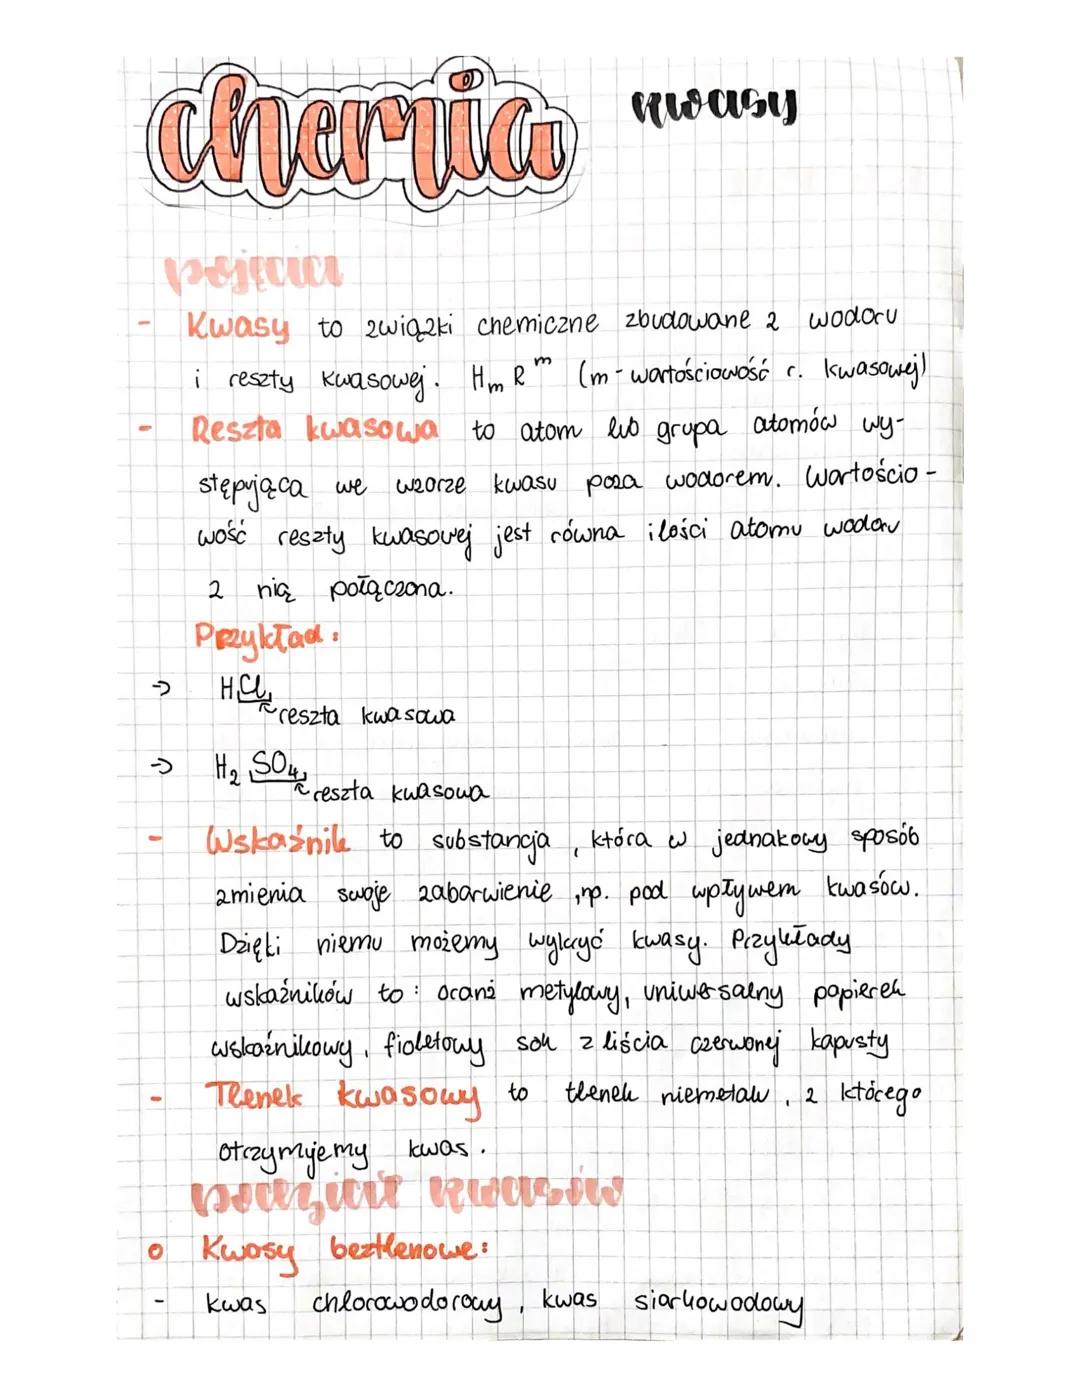 chemia
kwasy
pojęcia
- Kwasy to związki chemiczne zbudowane z wodoru
i reszty kwasowej. HₘRᵐ (m - wartościowość r. kwasowej)
- Reszta kwasowa to atom lub grupa atomów wy-
stępująca we wzorze kwasu poza wodorem. Wartościo-
wość reszty kwasowej jest równa ilości atomu wodoru
z nią połączona.
Przykład:
→ HCl
reszta kwasowa
→ H₂SO₄
reszta kwasowa
- Wskaźnik to substancja, która w jednakowy sposób
zmienia swoje zabarwienie, np. pod wpływem kwasów.
Dzięki niemu możemy wykryć kwasy. Przykłady
wskaźników to: oranż metylowy, uniwersalny papierek
wskaźnikowy, fioletowy sok z liścia czerwonej kapusty
- Tlenek kwasowy to tlenek niemetalu, z którego
otrzymujemy kwas.
podział kwasów
o Kwasy beztlenowe:
- kwas chlorowodorowy, kwas siarkowodowy